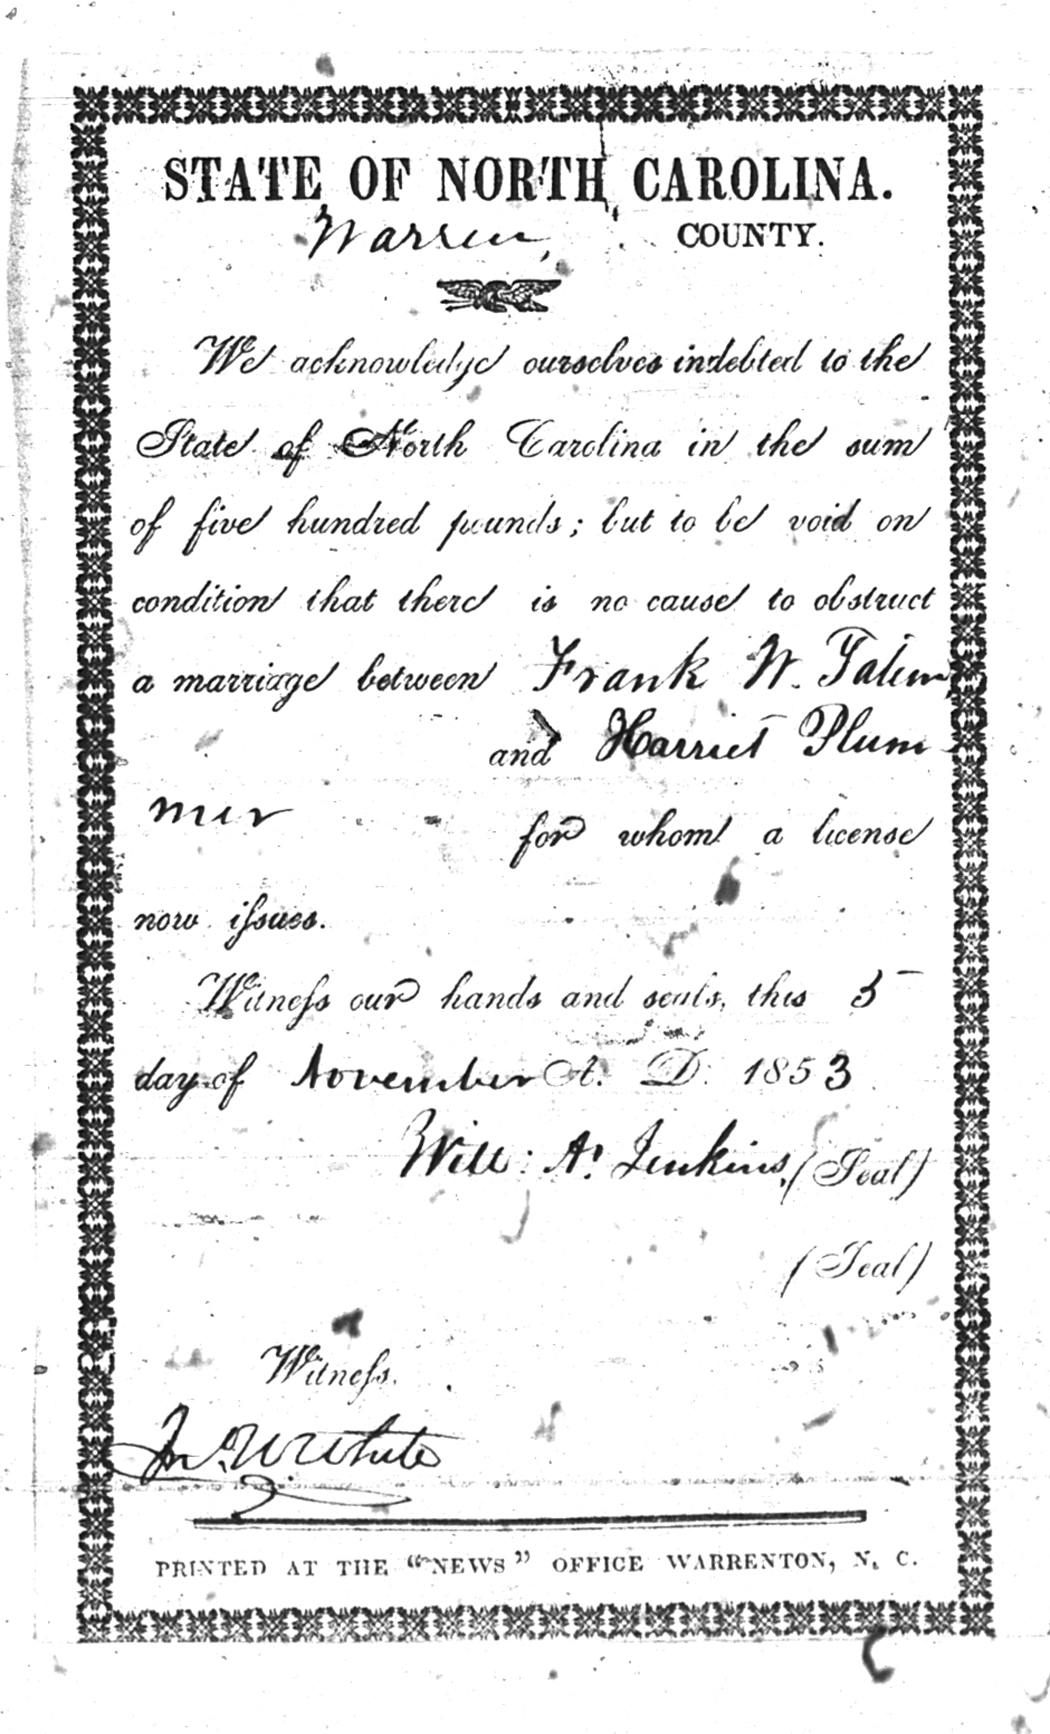 STATE OF NORTH CAROLINA.
Warren, COUNTY.
We acknowledge ourselves indebted to the
State of North Carolina in the sum
of five hundred pounds; but to be void on
condition that there is no cause to obstruct
a marriage between Frank W.
and Harriet Plum
mer for whom a license
now issues.
Witness our hands and seals, this 5
day of November A. D. 1853
Will: A. Jenkins, (Seal)
(Seal)
Witness.
White
PRINTED AT THE "NEWS" OFFICE WARRENTON, N. C.